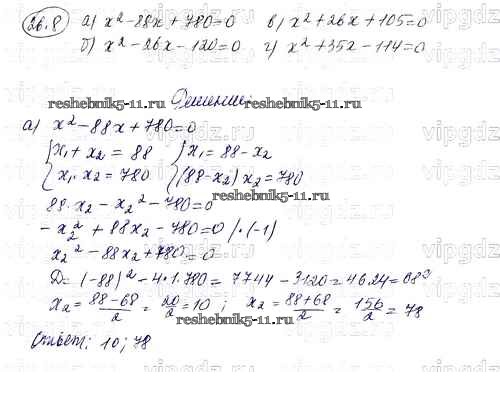 26.8 а) x² - 88x + 780 = 0 в) x² + 26x + 105 = 0
б) x² - 26x - 120 = 0 г) x² + 35x - 114 = 0
reshebnik5-11.ru Решение: reshebnik5-11.ru
а) x² - 88x + 780 = 0
{ x₁ + x₂ = 88 } x₁ = 88 - x₂
{ x₁ · x₂ = 780 { (88 - x₂) x₂ = 780
88·x₂ - x₂² - 780 = 0
- x₂² + 88x₂ - 780 = 0 /·(-1)
x₂² - 88x₂ + 780 = 0
reshebnik5-11.ru
D = (-88)² - 4·1·780 = 7744 - 3120 = 4624 = 68²
x₂ = (88-68)/2 = 20/2 = 10 ; x₂ = (88+68)/2 = 156/2 = 78
reshebnik5-11.ru
Ответ: 10; 78
vipgdz